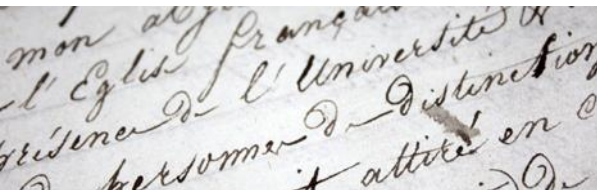 mon
l'Eglise françai
présence de l'Université &
personnes de Distinction
attiré en
de